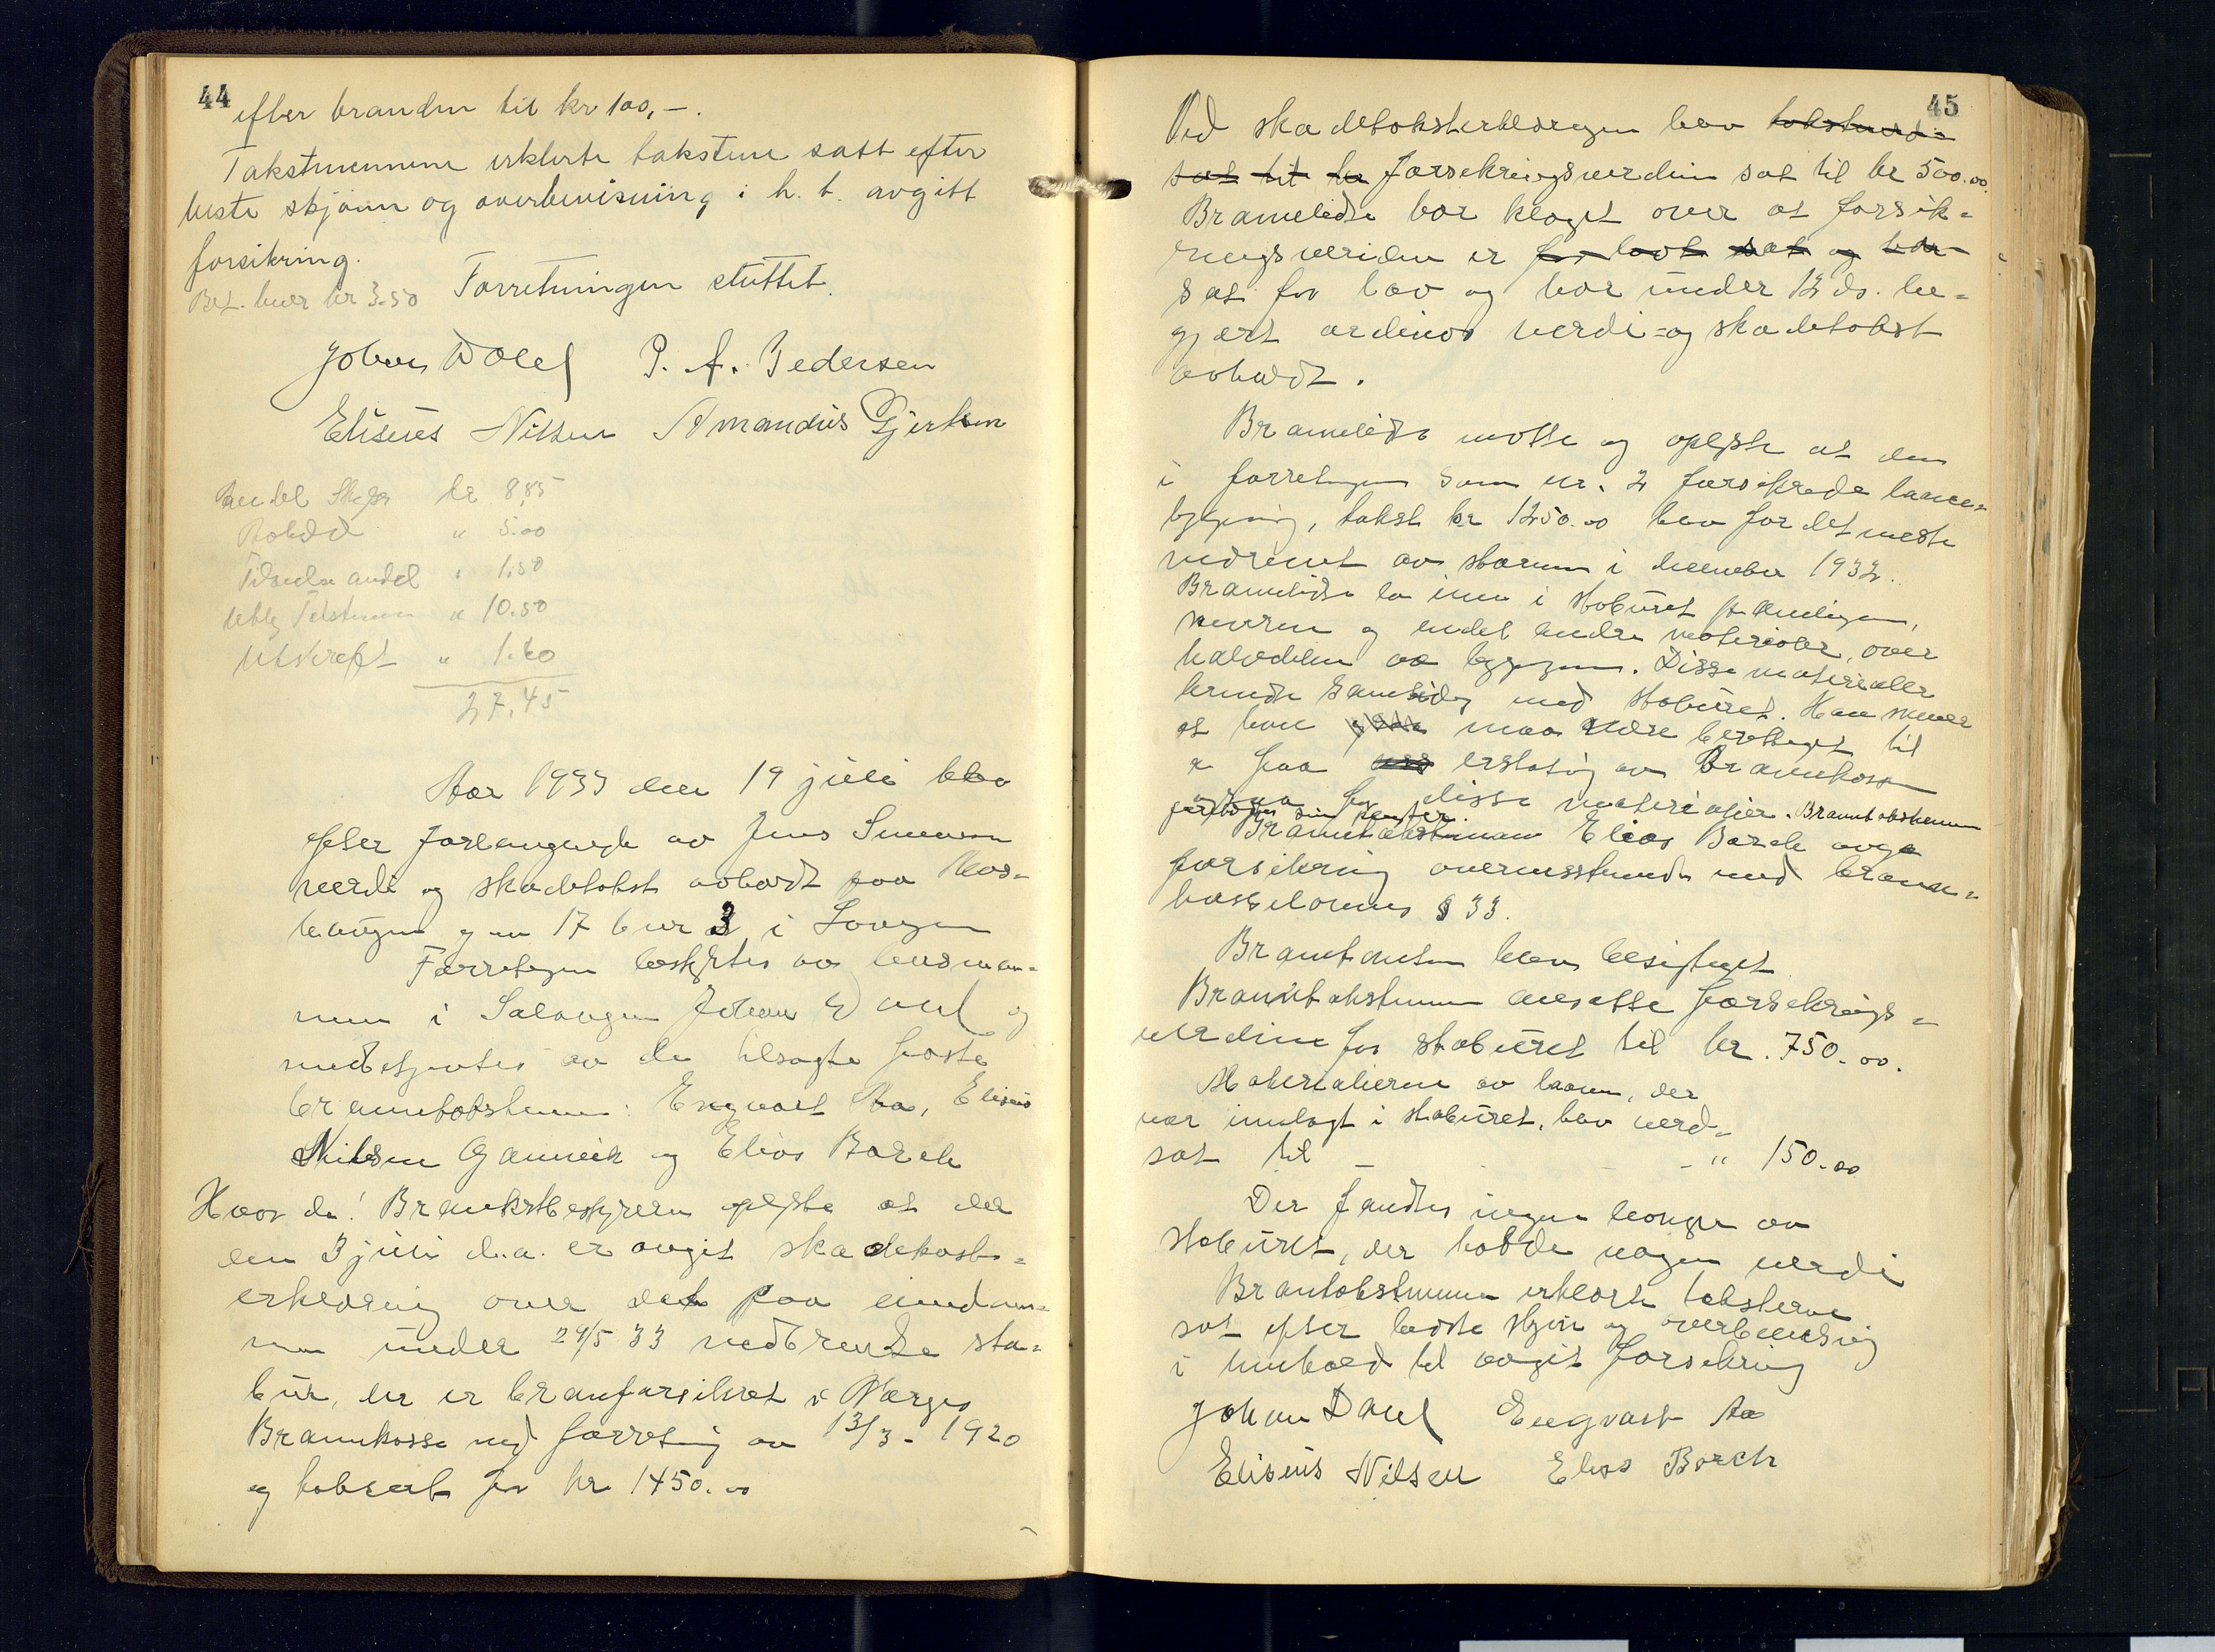 44
efter branden til kr 100,-.
Takstmennene erklerte takstene satt efter
beste skjønn og overbevisning i h. t. avgitt
forsikring.
Bet. hver kr 3.50 Forretningen sluttet.
Johan Dahl P. A. Pedersen
Eliseus Nilsen Amandus Gjertsen
Andel Skyss kr 8.85
Avhold " 5.00
Tilsuelse andel " 1.50
Utlg Takstmenn " 10.50
Utskrift " 1.60
27,45
Aar 1933 den 19 juli blev
efter forlangende av Jens Simonsen
verdi og skadetakst avholdt paa
haugen g nr 17 b nr 3 i Lavangen
Forretningen bestyrtes av lensman-
nen i Salangen Johan Dahl og
medbetjentes av de tilsagte faste
branntakstmenn: Engvart Aa, Elisæus
Nilsen Ganneik og Elias Borch
Hvor da! Brankstbestyreren oplyste at der
den 3 juli d.a. er avgit skadetakst-
erklæring over det paa eiendom-
men under 24/5 33 nedbrente sta-
bur, der er branforsikret i Norges
Brannkasse ved forretning av 13/3 - 1920
og taksert for kr 1450.00
45
Ved skadetaksterklæringen blev takstverdi-
sat til kr forsekringsverdien sat til kr 500.00.
Brannlidte har klaget over at forsik-
ringsverdien er for lavt sat og har
sat for lav og har under 12 ds. be-
gjært ordinær verdi- og skadetakst
avholdt.
Brannlidte møtte og oplyste at den
i forretningen som nr. 2 forsikrede laave-
bygning, takst kr 1250.00 blev for det meste
nedrevet av stormen i desember 1932.
Brannlidte la inn i staburet panelingen,
sverren og endel andre materialer, over
halvdelen av bygningen. Disse materialer
brendte samtidig med staburet. Han mener
at han maa være berettiget til
a faa erstatning av Brannkassen
ogsaa for disse materialier. Branntakstmenn
Branntakstmann Elias Borch avga
forsikring overensstemmende med brann-
kasselovens § 33.
Branntomten blev besiktiget
Branntakstmenn ansatte forsekrings-
verdien for staburet til kr. 750.00.
Materialierne av laaven, der
var innlagt i staburet, blev verd-
sat til - - - " 150.00
Der fandtes ingen levninger av
staburet, der hadde nogen verdi
Brantakstmenn erklærte taksterne
sat efter bedste skjøn og overbevisning
i henhold til avgit forsekring
Johan Dahl Engvart Aa
Elisæus Nilsen Elias Borch